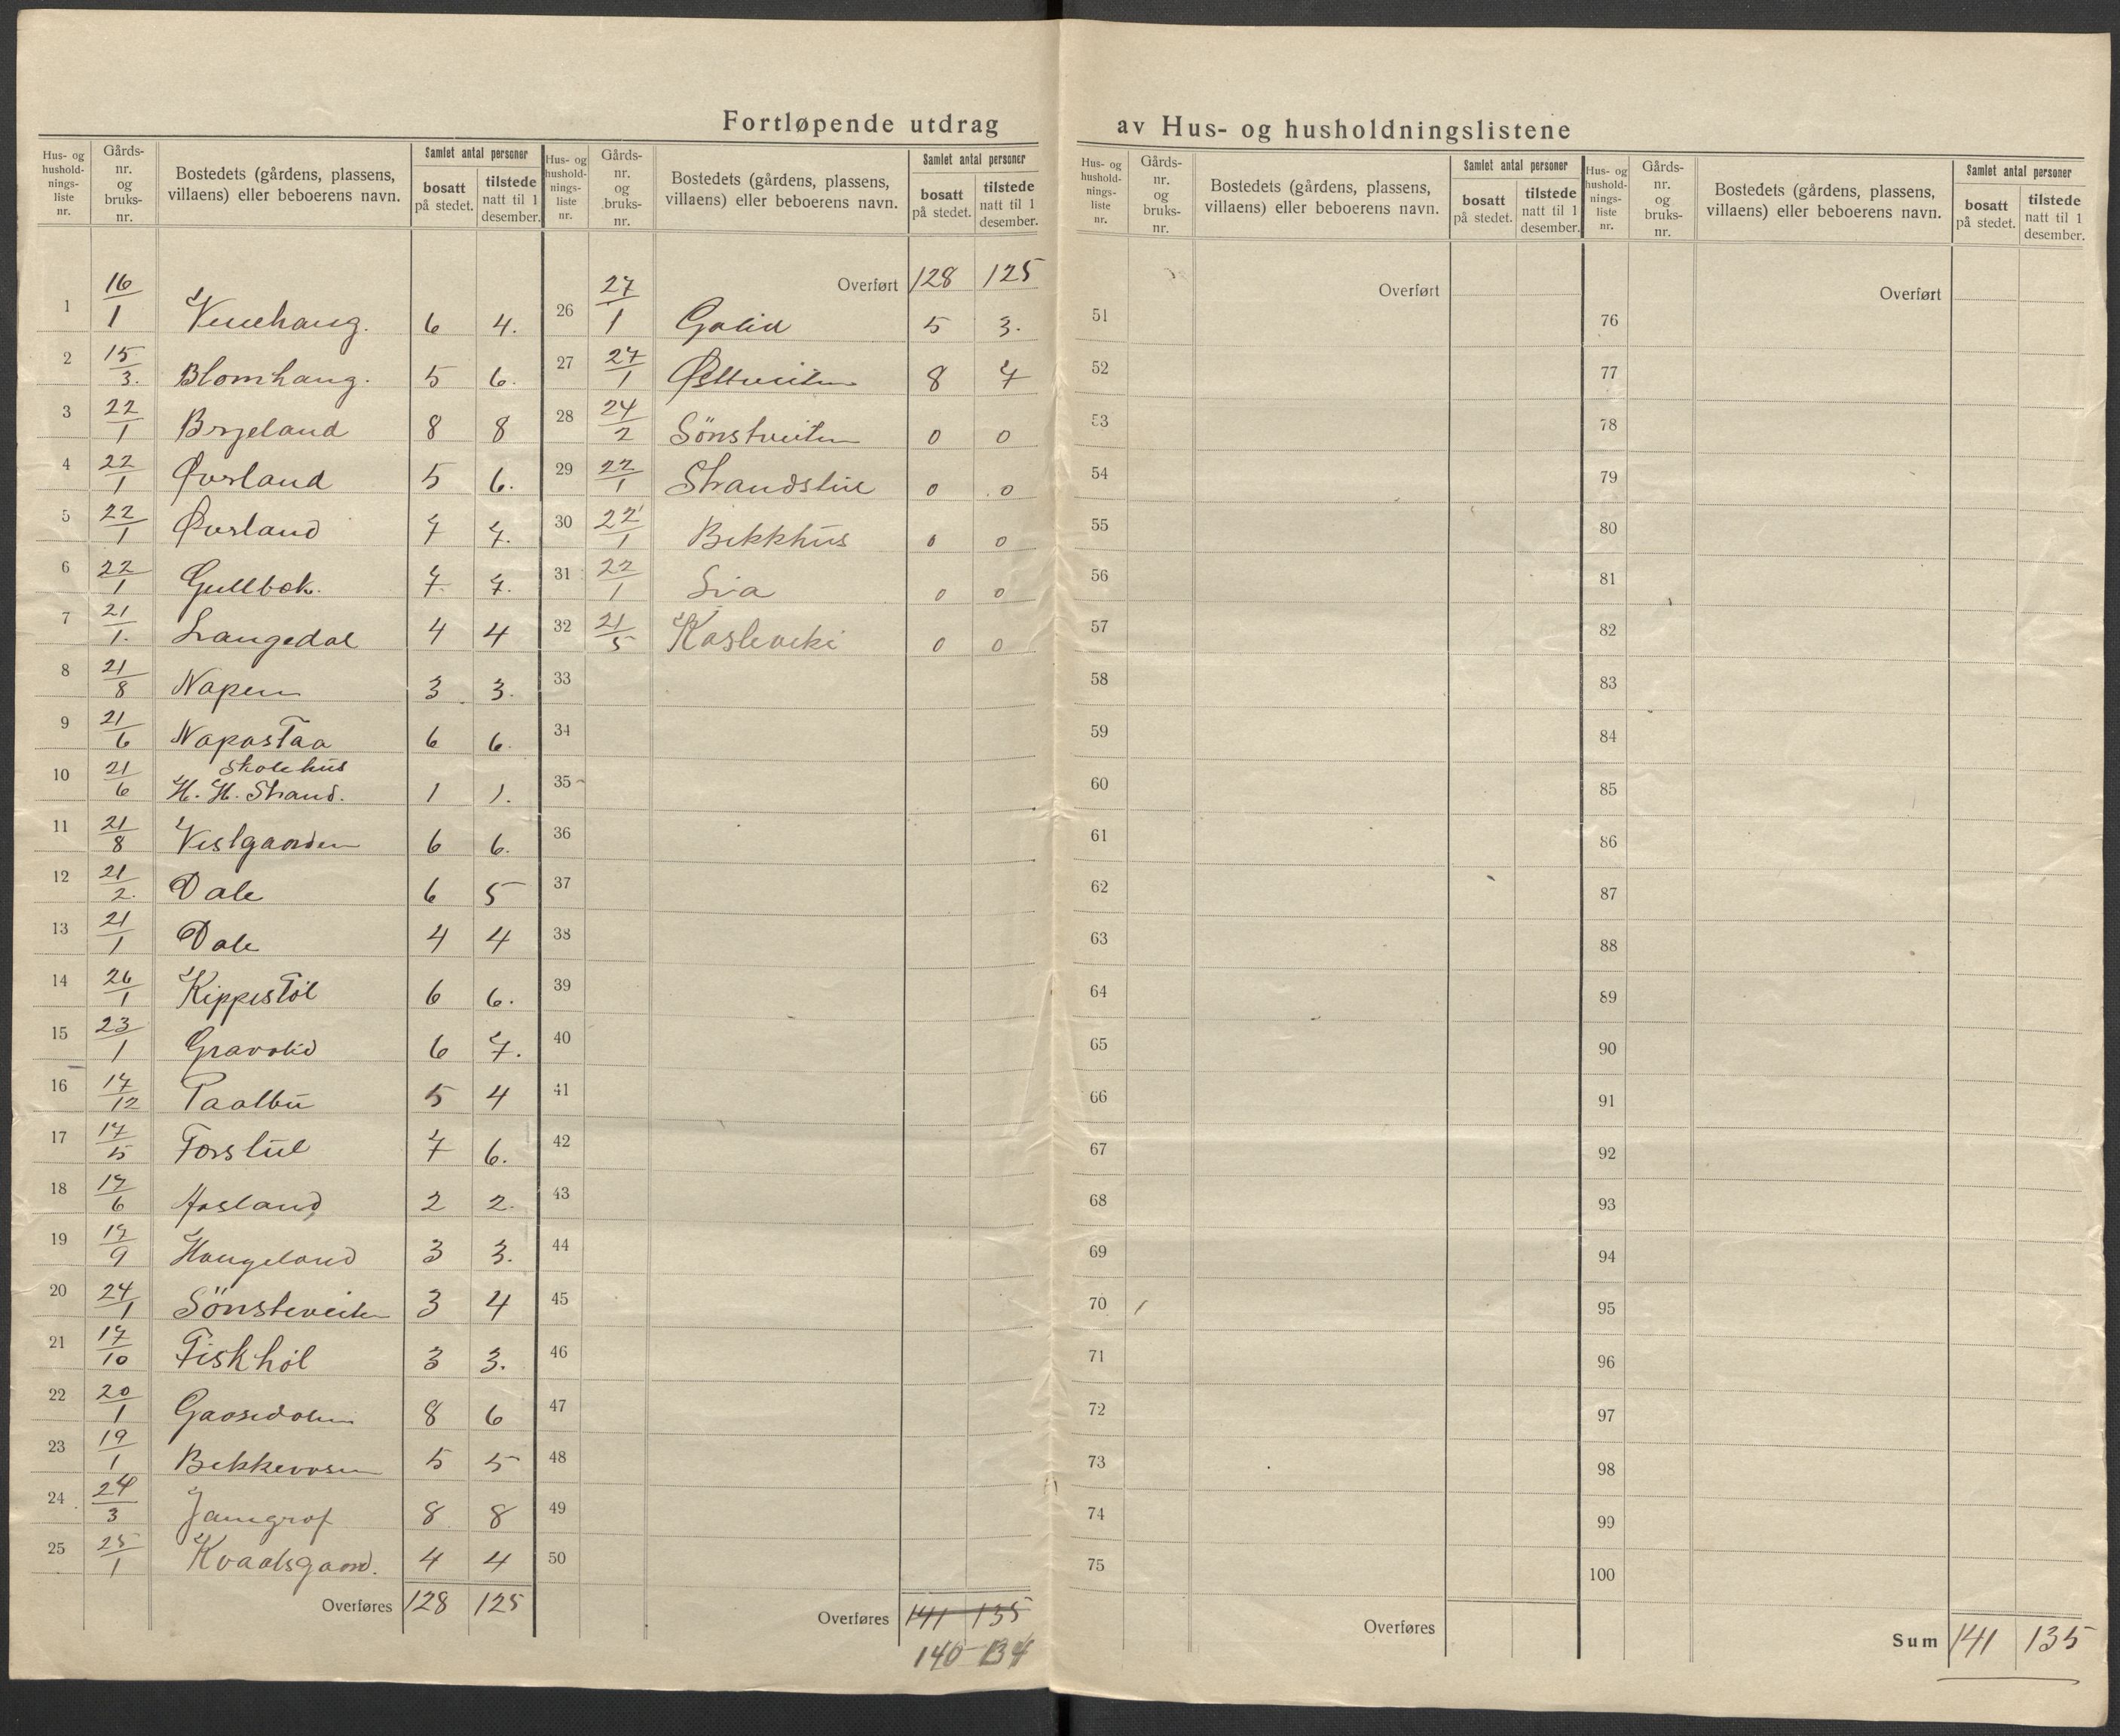 Fortløpende utdrag av Hus- og husholdningslistene
Hus- og hushold-nings-liste nr. Gårds-nr. og bruks-nr. Bostedets (gårdens, plassens, villaens) eller beboerens navn. Samlet antal personer bosatt på stedet. tilstede natt til 1 desember.
1 16/1 Vinehaug. 6 4.
2 15/3. Blomhaug. 5 6.
3 22/1 Bryeland 8 8
4 22/1 Øvrland 5 6.
5 22/1 Øvrland 7 7.
6 22/1 Gullbok. 7 7.
7 21/1. Langedal 4 4
8 21/8 Napen 3 3.
9 21/6 NapasTaa 6 6.
10 21/6 Skolehus
H. H. Strand. 1 1.
11 21/8 Vestgaarden 6 6.
12 21/2. Dale 6 5
13 21/1 Dale 4 4
14 26/1 Kippestøl 6 6.
15 23/1 Gravalid 6 7.
16 17/12 Paalbu 5 4
17 17/5 Forstul 7 6.
18 17/6 Aasland 2 2.
19 17/9 Haugeland 3 3.
20 24/1 Sönsteveiten 3 4
21 17/10 Fiskhøl 3 3.
22 20/1 Gaasedalen 8 6
23 19/1 Bekkevasen 5 5
24 24/3 Jamgrof 8 8
25 25/1 Kvaalsgaard. 4 4
Overføres 128 125
Hus- og hushold-nings-liste nr. Gårds-nr. og bruks-nr. Bostedets (gårdens, plassens, villaens) eller beboerens navn. Samlet antal personer bosatt på stedet. tilstede natt til 1 desember.
Overført 128 125
26 27/1 Golid 5 3.
27 27/1 Østtveiten 8 7
28 24/2 Sönstveiten 0 0
29 22/1 Strandstul 0 0
30 22/1 Bekkhus 0 0
31 22/1 Lia 0 0
32 21/5 0 0
33
34
35
36
37
38
39
40
41
42
43
44
45
46
47
48
49
50
Overføres 141 135
140 134
Hus- og hushold-nings-liste nr. Gårds-nr. og bruks-nr. Bostedets (gårdens, plassens, villaens) eller beboerens navn. Samlet antal personer bosatt på stedet. tilstede natt til 1 desember.
Overført
51
52
53
54
55
56
57
58
59
60
61
62
63
64
65
66
67
68
69
70
71
72
73
74
75
Overføres
Hus- og hushold-nings-liste nr. Gårds-nr. og bruks-nr. Bostedets (gårdens, plassens, villaens) eller beboerens navn. Samlet antal personer bosatt på stedet. tilstede natt til 1 desember.
Overført
76
77
78
79
80
81
82
83
84
85
86
87
88
89
90
91
92
93
94
95
96
97
98
99
100
Sum 141 135